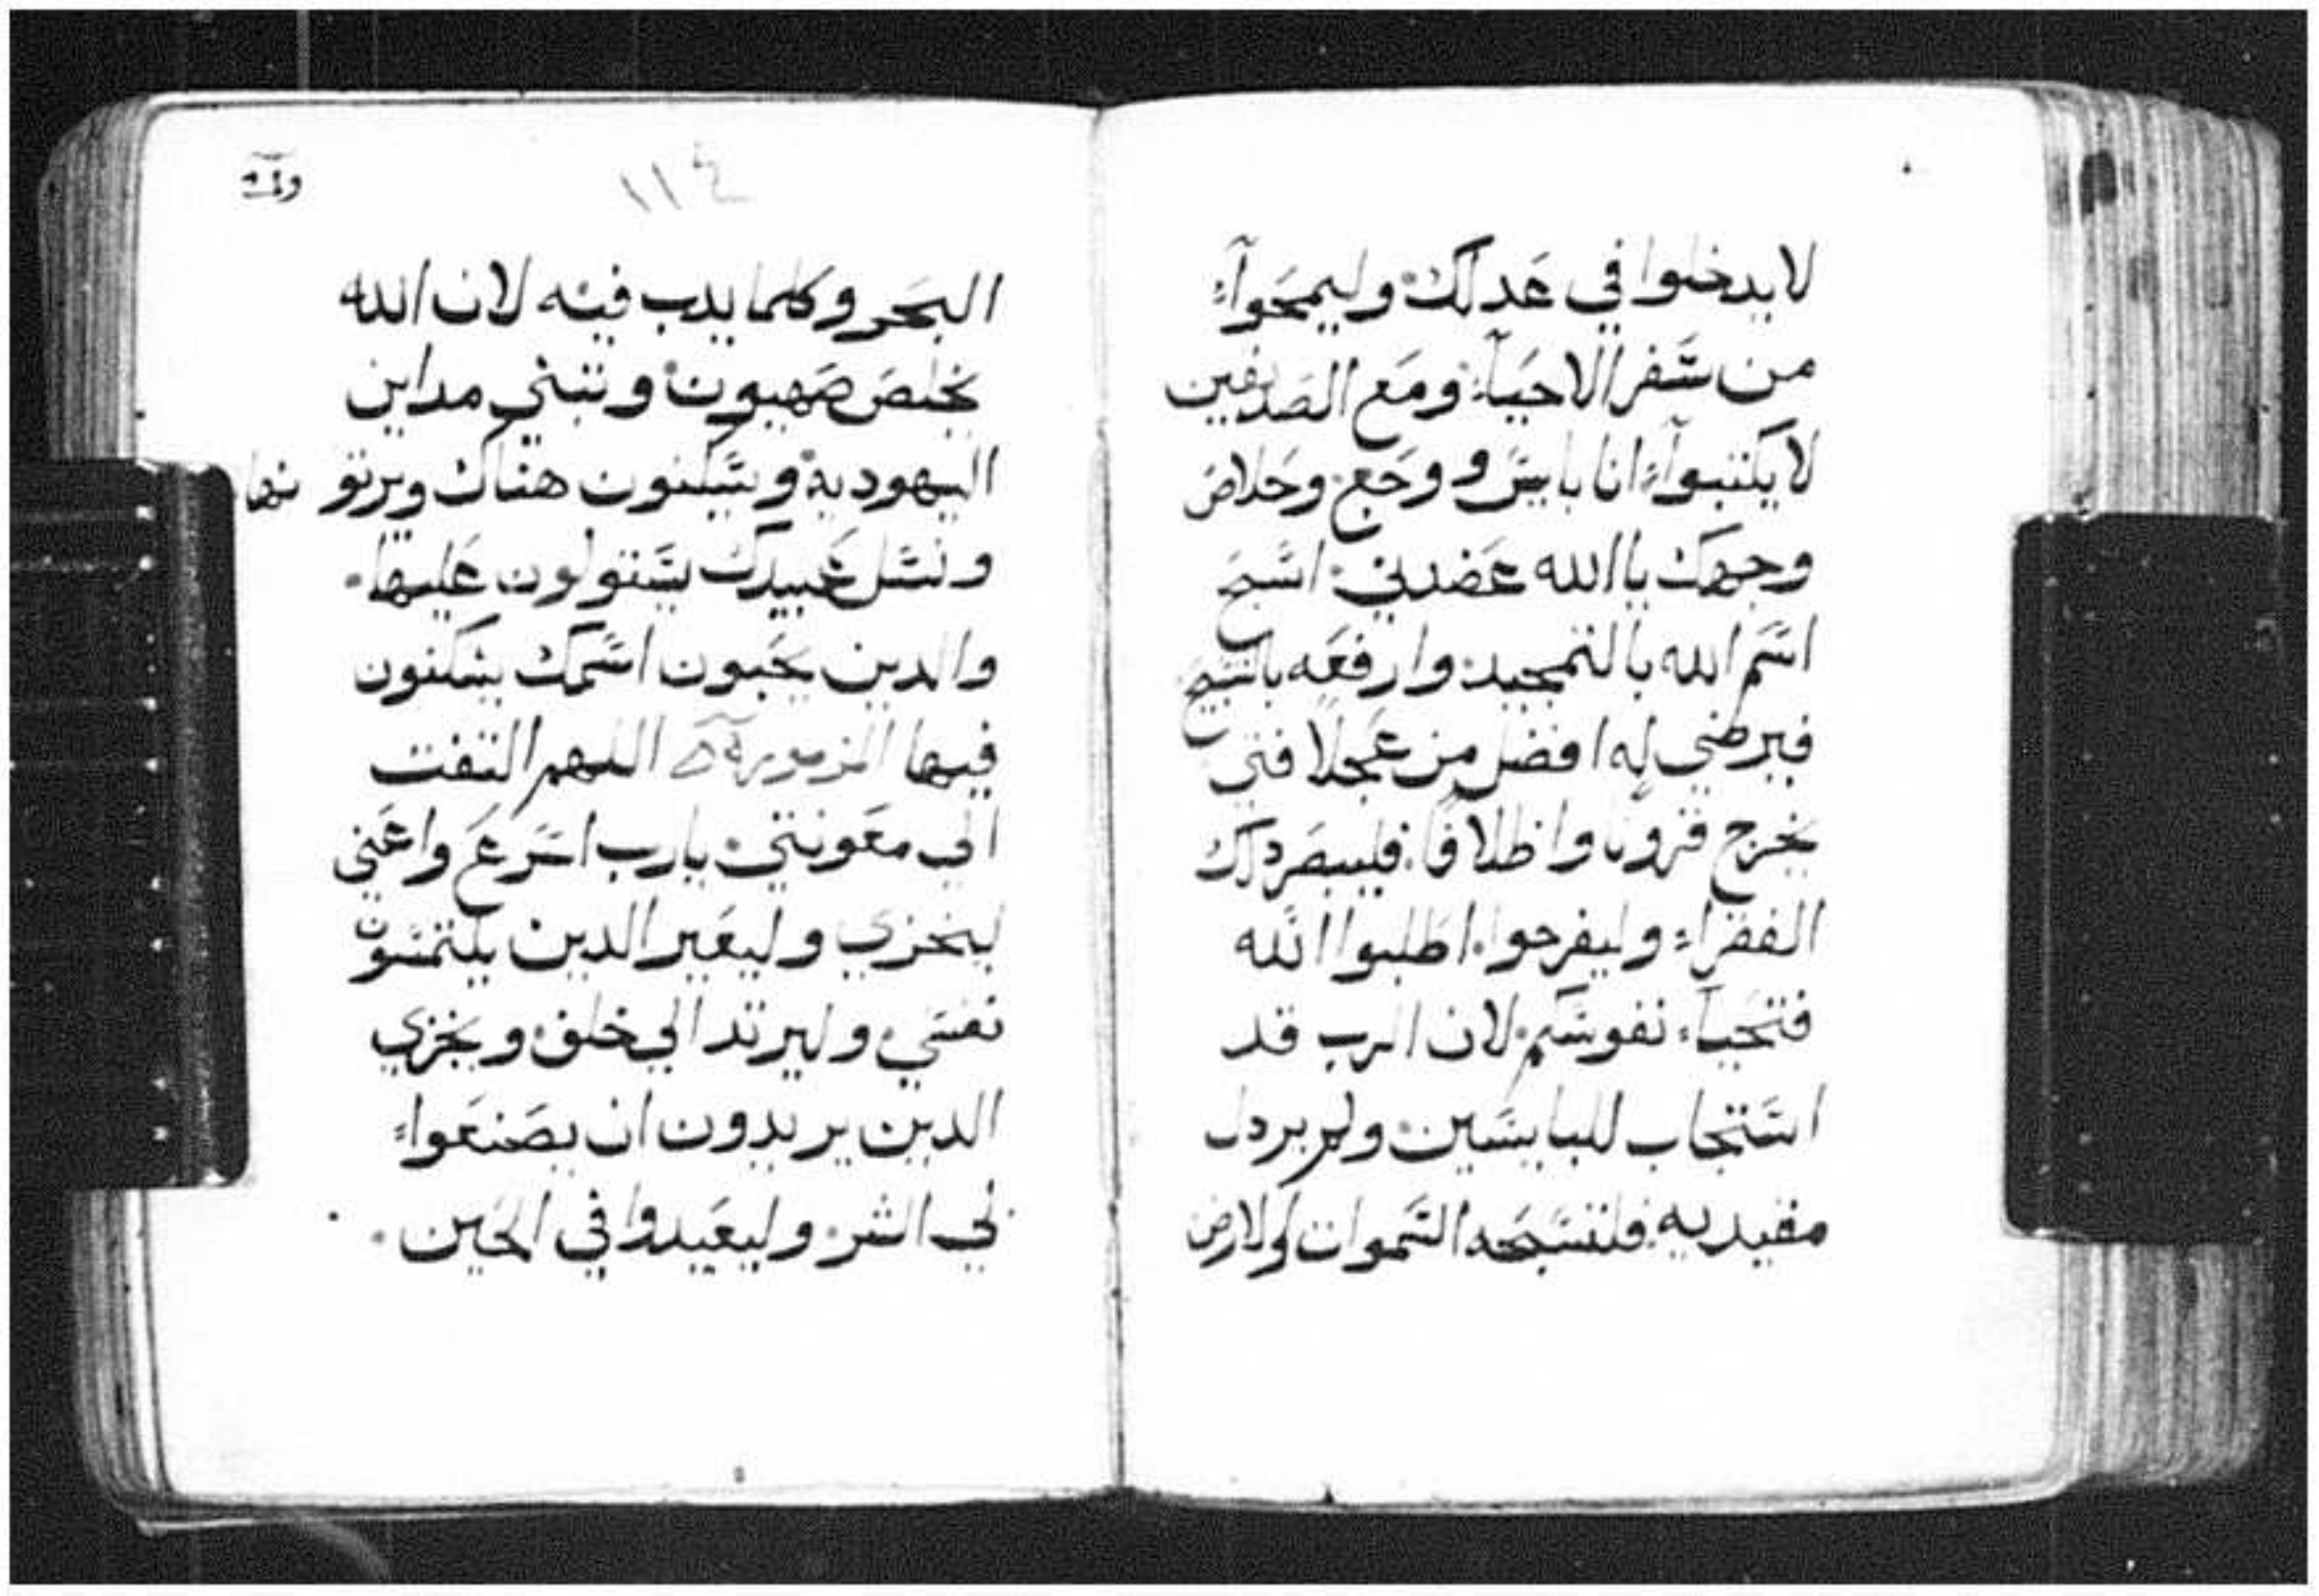 لا يدخلوا في عدلك وليمحواء
من سفر الاحياء ومع الصديقين
لا يكتبواء انا بايس ووجع وخلاص
وجهك ياالله عضدني اسبح
اسم الله بالتمجيد وارفعه بالتسبيح
فيرضي له افضل من عجلا فتي
يخرج قرونا واظلافا فليبصر دلك
الفقراء وليفرحوا اطلبوا الله
فتحياء نفوسكم لان الرب قد
استجاب للبايسين ولم يردل
مقيديه فلتسبحه السموات والارض
١١٤
البحر وكلما يدب فيه لان الله
يخلص صهيون وتبني مداين
اليهودية ويسكنون هناك ويرتو نها
ونسل عبيدك يستولون عليها
والدين يحبون اسمك يسكنون
فيها المزمور اللهم التفت
الي معونتي يارب اسرع واعني
ليخزي وليعير الدين يلتمسون
نفسي وليرتد الي خلف ويخزي
الدين يريدون ان يصنعواء
لي الشر وليعيدوا في الحين